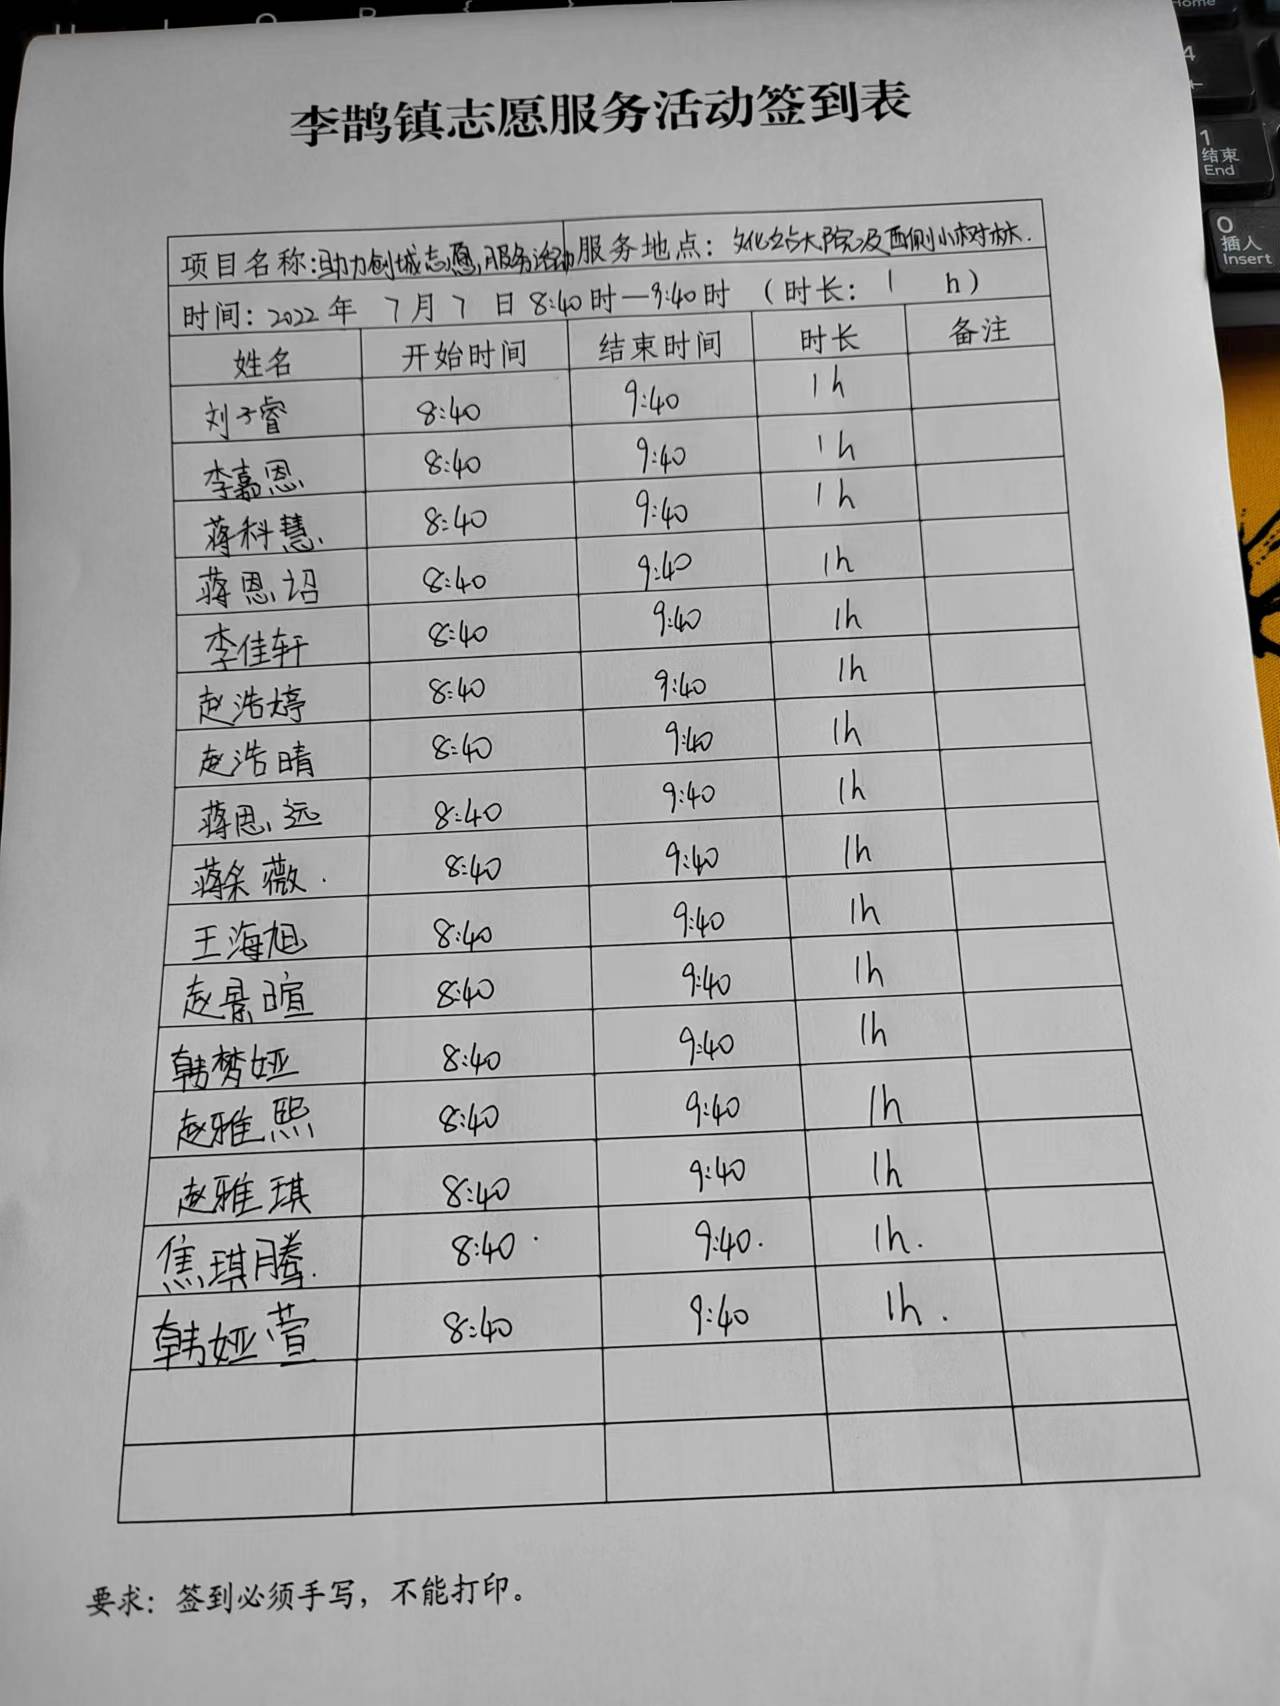 李鹊镇志愿服务活动签到表
项目名称:助力创城志愿服务活动 服务地点：文化站大院及西侧小树林.
时间：2022年 7月 7 日 8:40时—9:40时 （时长： 1 h）
姓名 开始时间 结束时间 时长 备注
刘子睿 8:40 9:40 1h
李嘉恩 8:40 9:40 1h
蒋科慧. 8:40 9:40 1h
蒋恩诏 8:40 9:40 1h
李佳轩 8:40 9:40 1h
赵浩婷 8:40 9:40 1h
赵浩晴 8:40 9:40 1h
蒋恩远 8:40 9:40 1h
蒋采薇. 8:40 9:40 1h
王海旭 8:40 9:40 1h
赵景暄 8:40 9:40 1h
韩梦娅 8:40 9:40 1h
赵雅熙 8:40 9:40 1h
赵雅琪 8:40 9:40 1h
焦琪腾. 8:40. 9:40. 1h.
韩娅萱 8:40 9:40 1h.
要求：签到必须手写，不能打印。
Home
4
1
结束
End
0
插人
Insert